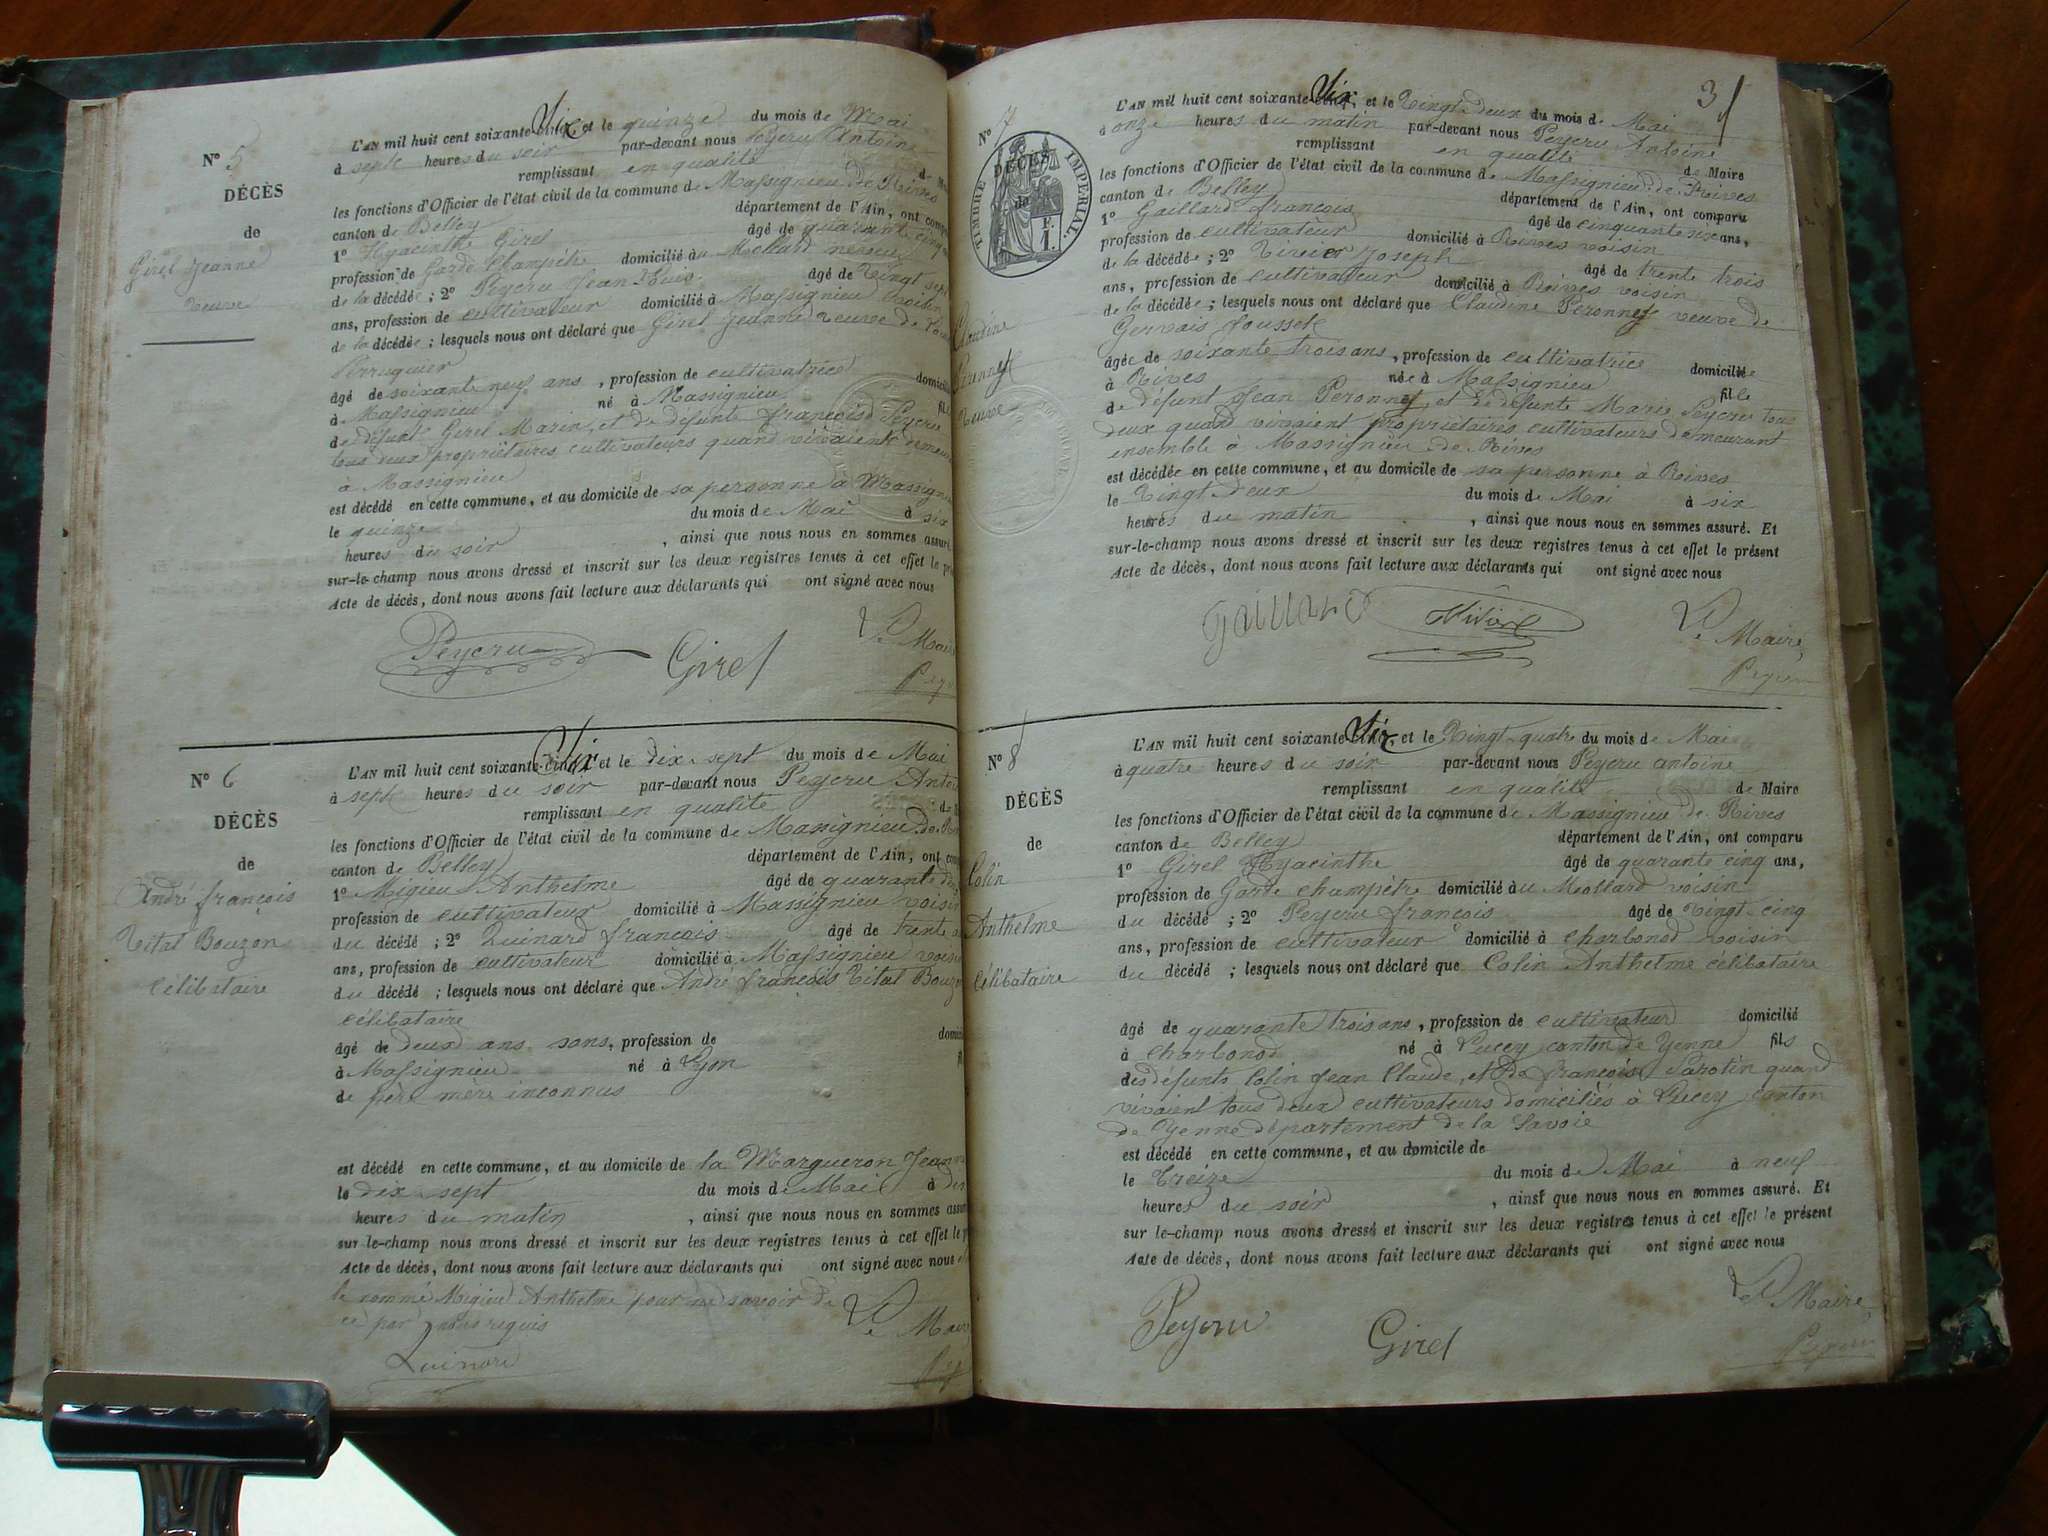 N° 5
DÉCÈS
de
Girel Jeanne
veuve
L'AN mil huit cent soixante Six et le quinze du mois de Mai
à sept heures du soir par-devant nous Peyeru Antoine
remplissant en qualité de
les fonctions d'Officier de l'état civil de la commune de Massignieu de Rives
canton de Belley département de l'Ain, ont
1° Hyacinthe Girel âgé de quarante cinq
profession de Garde Champêtre domicilié au Mollard neveu
de la décédée ; 2° Peyeru Jean Louis âgé de Vingt sept
ans, profession de cultivateur domicilié à Massignieu voisin
de la décédée ; lesquels nous ont déclaré que Girel Jeanne veuve de
Perruquier
âgé de soixante neuf ans, profession de cultivatrice
à Massignieu né à Massignieu
de défunt Girel Marin et de défunte françoise Peyeru
tous deux propriétaires cultivateurs quand vivaient
à Massignieu
est décédé en cette commune, et au domicile de sa personne à
le quinze du mois de Mai à six
heures du soir , ainsi que nous nous en sommes assuré
sur-le-champ nous avons dressé et inscrit sur les deux registres tenus à cet effet le
Acte de décès, dont nous avons fait lecture aux déclarants qui ont signé avec nous
Peyeru Girel
Le Maire
N° 6
DÉCÈS
de
André françois
Vital Bouzon
célibataire
L'AN mil huit cent soixante Six et le dix sept du mois de Mai
à sept heures du soir par-devant nous Peyeru
remplissant en qualité
les fonctions d'Officier de l'état civil de la commune de Massignieu de
canton de Belley département de l'Ain, ont
1° Migieu Anthelme âgé de quarante
profession de cultivateur domicilié à Massignieu voisin
du décédé ; 2° Quinard françois âgé de trente
ans, profession de cultivateur domicilié à Massignieu voisin
du décédé ; lesquels nous ont déclaré que André françois Vital Bouzon
célibataire
âgé de deux ans sans, profession de
à Massignieu né à Lyon
de père mère inconnus
est décédé en cette commune, et au domicile de la Margueron
le dix sept du mois de Mai à
heures du matin , ainsi que nous nous en sommes
sur le-champ nous avons dressé et inscrit sur les deux registres tenus à cet effet le
Acte de décès, dont nous avons fait lecture aux déclarants qui ont signé avec nous
le nommé Migieu Anthelme pour ne savoir de
ce par nous requis
Le
Quinard
3
N° 7
TIMBRE IMPÉRIAL
DÉCÈS
de
Claudine
Péronnet
veuve
L'AN mil huit cent soixante Six, et le Vingt deux du mois de Mai
à onze heures du matin par-devant nous Peyeru Antoine
remplissant en qualité de Maire
les fonctions d'Officier de l'état civil de la commune de Massignieu de Rives
canton de Belley département de l'Ain, ont comparu
1° Gaillard françois âgé de cinquante six ans,
profession de cultivateur domicilié à Rives voisin
de la décédée ; 2° Vivier Joseph âgé de trente trois
ans, profession de cultivateur domicilié à Rives voisin
de la décédée ; lesquels nous ont déclaré que Claudine Péronnet veuve de
Gervais
âgée de soixante trois ans, profession de cultivatrice domiciliée
à Rives née à Massignieu fille
de défunt Jean Péronnet et de défunte Marie Peyeru tous
deux quand vivaient propriétaires cultivateurs demeurant
ensemble à Massignieu de Rives
est décédée en cette commune, et au domicile de sa personne à Rives
le Vingt deux du mois de Mai à six
heures du matin , ainsi que nous nous en sommes assuré. Et
sur-le-champ nous avons dressé et inscrit sur les deux registres tenus à cet effet le présent
Acte de décès, dont nous avons fait lecture aux déclarants qui ont signé avec nous
Gaillard
Le Maire,
Peyeru
N° 8
DÉCÈS
de
Colin
Anthelme
célibataire
L'AN mil huit cent soixante Six, et le Vingt quatre du mois de Mai
à quatre heures du soir par-devant nous Peyeru antoine
remplissant en qualité de Maire
les fonctions d'Officier de l'état civil de la commune de Massignieu de Rives
canton de Belley département de l'Ain, ont comparu
1° Girel Hyacinthe âgé de quarante cinq ans,
profession de Garde champêtre domicilié au Mollard voisin
du décédé ; 2° Peyeru françois âgé de Vingt cinq
ans, profession de cultivateur domicilié à charbonod voisin
du décédé ; lesquels nous ont déclaré que Colin Anthelme célibataire
âgé de quarante trois ans, profession de cultivateur domicilié
à charbonod né à Lucey canton de Yenne fils
des défunts Colin Jean Claude, et de françoise Parotin quand
vivaient tous deux cultivateurs domiciliés à Lucey canton
de Yenne département de la Savoie
est décédé en cette commune, et au domicile de
le treize du mois de Mai à neuf
heures du soir , ainsi que nous nous en sommes assuré. Et
sur-le-champ nous avons dressé et inscrit sur les deux registres tenus à cet effet le présent
Acte de décès, dont nous avons fait lecture aux déclarants qui ont signé avec nous
Le Maire,
Peyeru Girel
Peyeru